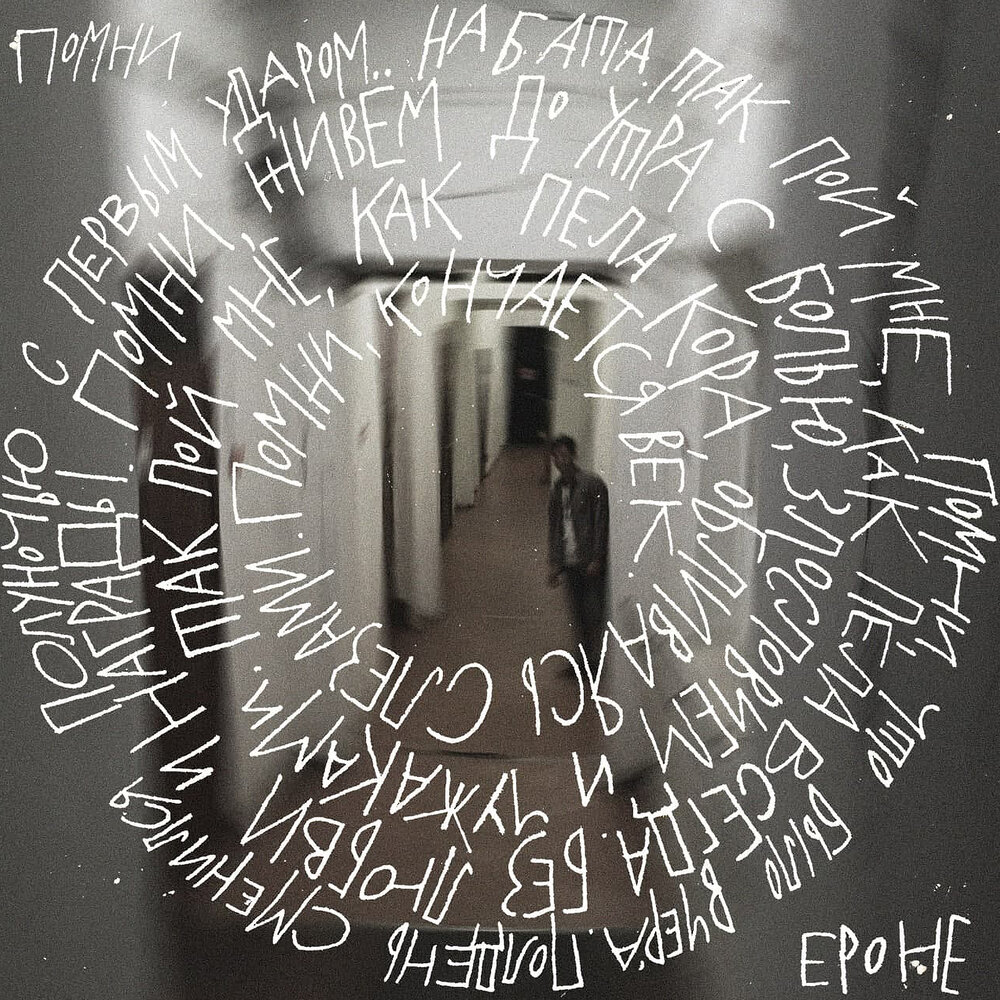 ПОМНИ
ПОМНИ, ЧТО БЫЛО ВЧЕРА. ПОЛДЕНЬ СМЕНИЛСЯ ПОЛУНОЧЬЮ С ПЕРВЫМ УДАРОМ.. НАБАТА. ТАК ПОЙ МНЕ, КАК ПЕЛА ВСЕГДА. БЕЗ ЛЮБВИ И НАГРАДЫ. ПОМНИ ЖИВЕМ ДО УТРА С БОЛЬЮ, ЗЛОСЛОВИЕМ И ЧУЖАКАМИ. ТАК ПОЙ МНЕ, КАК ПЕЛА КОРА, ОБЛИВАЯСЬ СЛЕЗАМИ. ПОМНИ, КОНЧАЕТСЯ ВЕК.
ЕРОНЕ